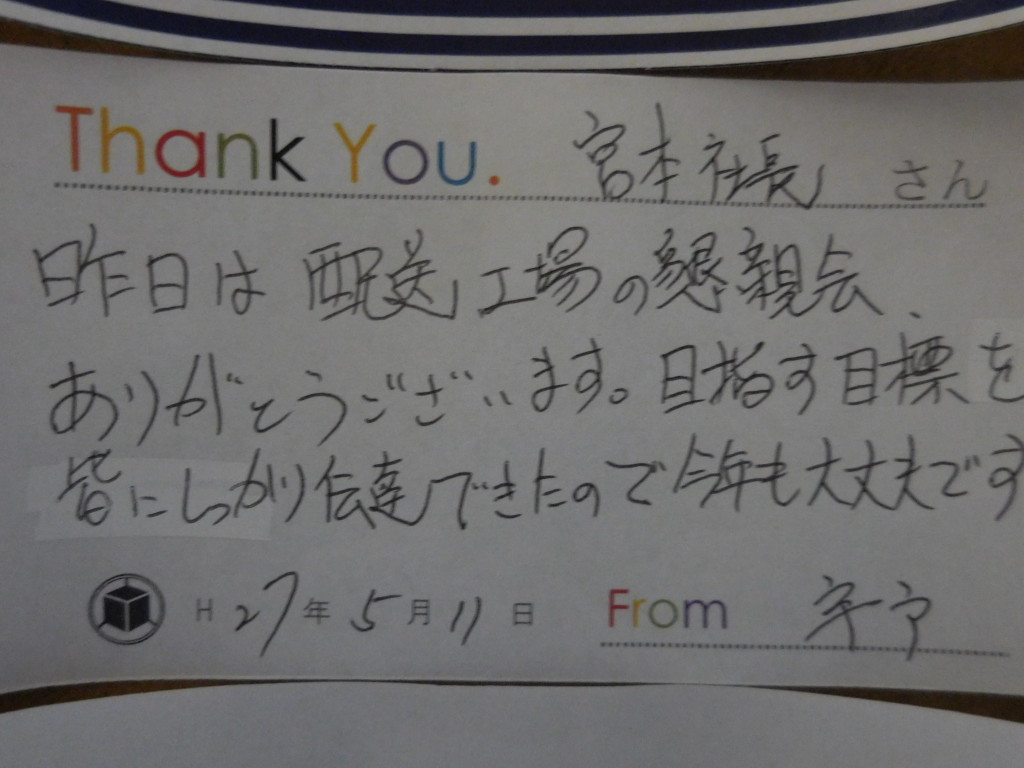 Thank You. 宮本社長 さん
昨日は 配送工場の懇親会、
ありがとうございます。目指す目標を
皆にしっかり伝達できたので今年も大丈夫です
H 27年 5月 11日 From